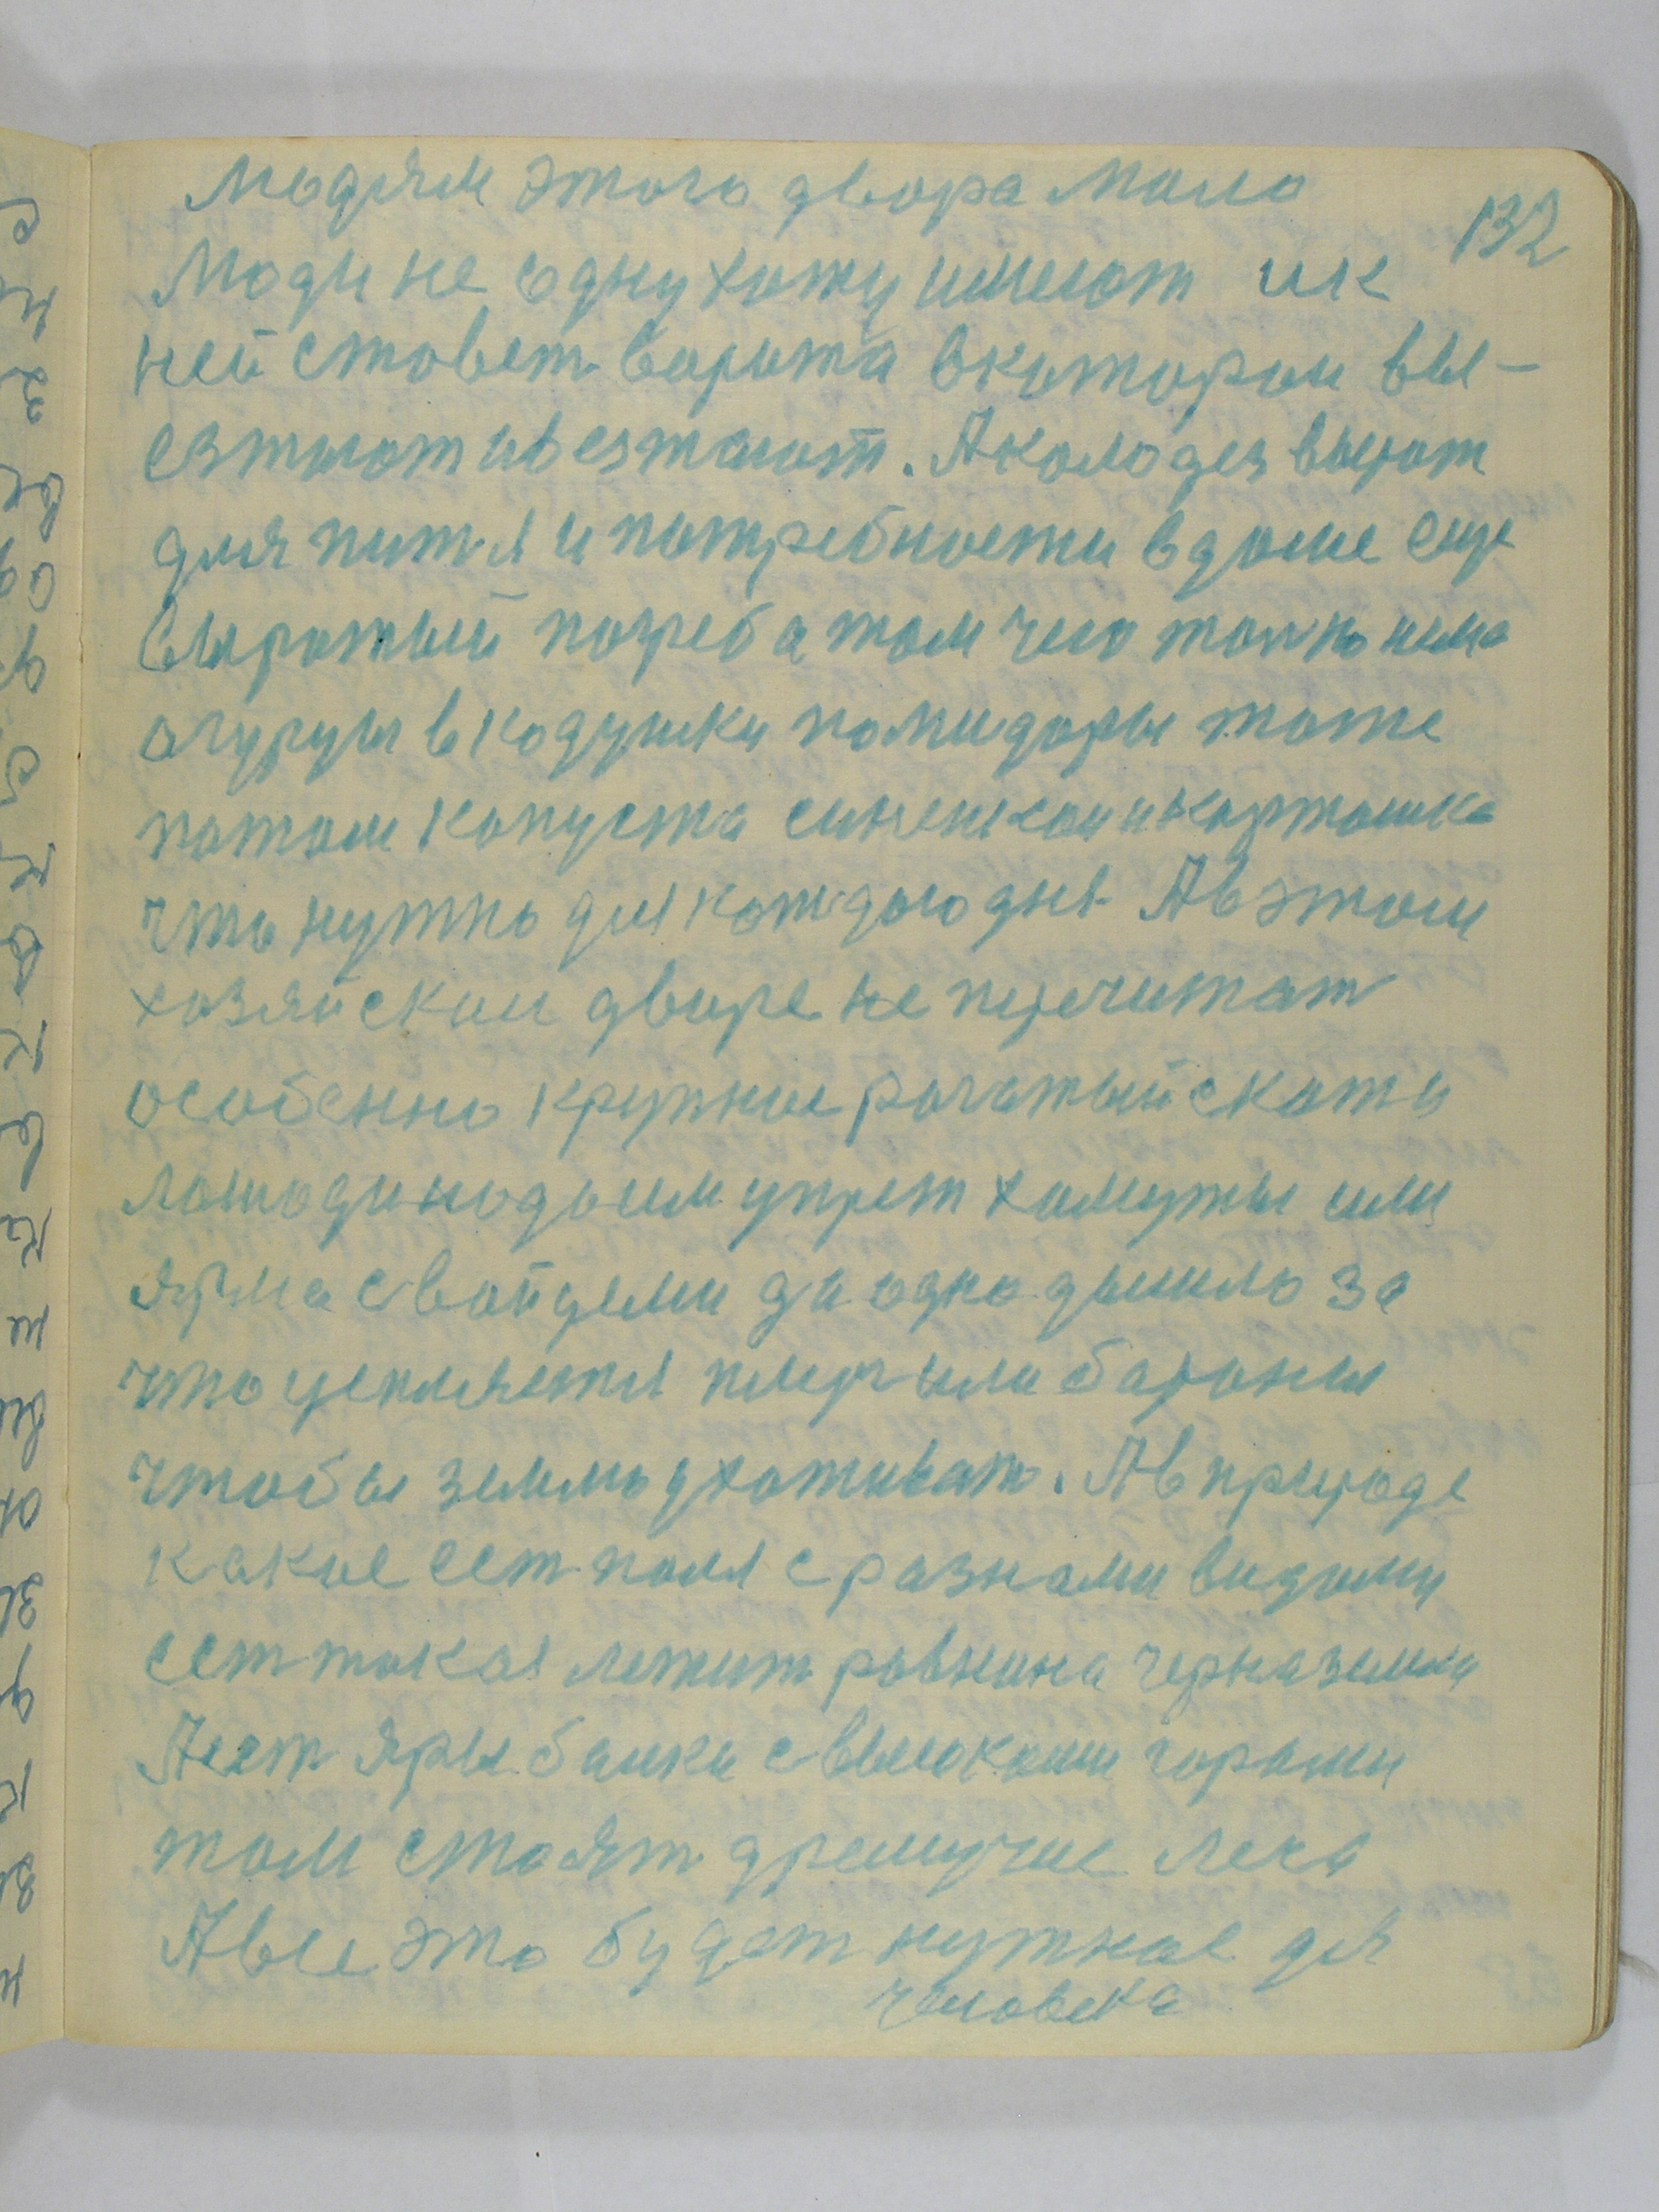 Людям этого двора мало
132
Люди не одну хату имеют ик
ней ставет варота вкоторои вы-
езжают ивезжают. Аколодез вырот
для питя и потребности вдоме еще
выротый погреб а том чего толко нема
огурцы вкодушки помидоры тоже
потом капуста синенкои икортошка
что нужно для кождого дня Авэтом
хозяйском дворе не перечитат
особенно крупное рогатый скот и
лошади надоим упрет хомуты или
ярма свойцеми да одно дышло за
что цепляется плуг или бароны
чтобы землю ухаживат. Ав природе
какие ест поля с разнами видами
ест такая лежит равнина черназемна
Аест яры балки свысокоми гороми
там стоят дремучие леса
Авсе это будет нужное для
человека